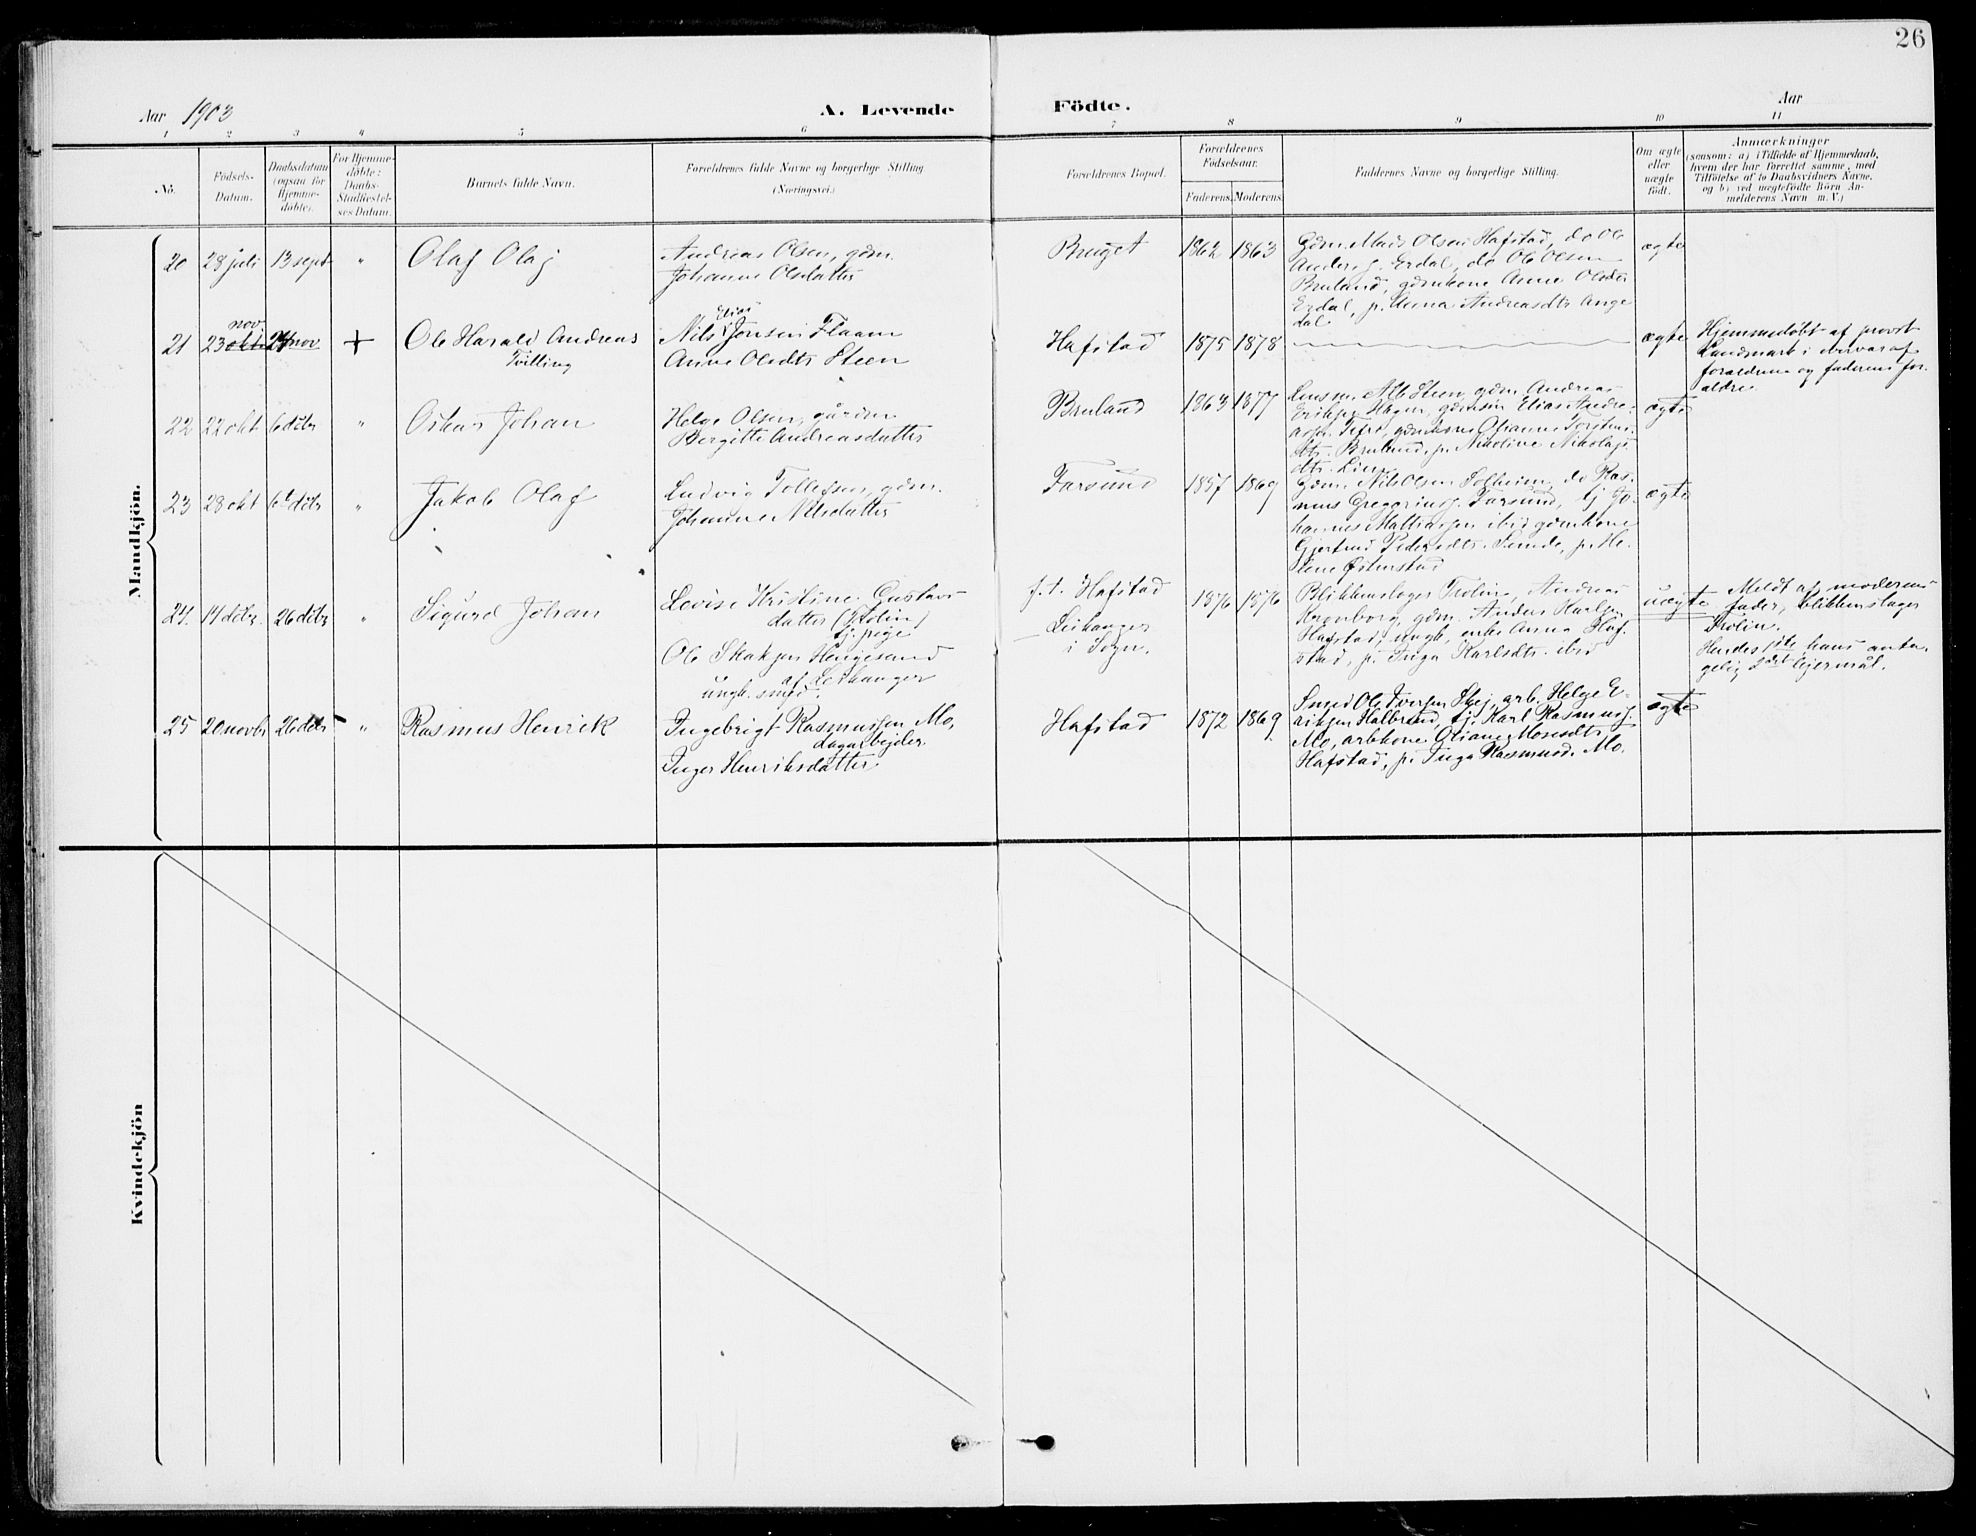 26
Aar 1903
A. Levende
Födte.
Aar
1 2 3 4 5 6 7 8 9 10 11
No.
Födsels-
Datum.
Daabsdatum
(ogsaa for
Hjemme-
døbte).
For Hjemme-
döbte:
Daabs-
Stadfæstel-
ses Datum.
Barnets fulde Navn.
Forældrenes fulde Navne og borgerlige Stilling.
(Næringsvei.)
Forældrenes Bopæl.
Forældrenes
Födselsaar.
Faderens. Moderens.
Faddernes Navne og borgerlige Stilling.
Om ægte
eller
uægte
født.
Anmærkninger
(saasom: a) i Tilfælde af Hjemmedaab,
hvem der har forrettet samme, med
Tilføielse af to Daabsvidners Navne,
og b) ved uægtefödte Börn An-
melderens Navn m. V.)
Mandkjön.
20 28 juli 13 sept " Olaf Olaj
Andreas Olsen, gdm.
Johanne Olsdatter
Bruget 1862 1863
Gdm. Mads Olsen Hafstad, do Ole
Anders. Erdal, do Ole Olsen
Bruland, gdmkone Anne Olsdtr
Erdal, p. Anna Andreasdtr Ange
dal
ægte
21 23 okt nov. 24 nov + Ole Harald Andreas
Tvilling
Elias
Nils Jonsen Flaam
Anne Olsdtr Steen
Hafstad 1875 1878
ægte
Hjemmedøbt af provst
Landmark i overvær af
forældrene og faderens for-
ældre.
22 22 okt 6 dcbr " Oskar Johan
Helge Olsen, gårdm
Bergitte Andreasdatter
Bruland 1863 1877
Lensm. Alb Steen, gdm. Andreas
Eriksen Hagen, gdmsøn Elias Andre-
assen Tefre, gdmkone Johanne Torstens-
dtr. Bruland, p. Nikoline Nikolajs
dtr. Lien
ægte
23 28 okt 6 dcbr " Jakob Olaf
Ludvig Tollefsen, gdm.
Johanne Nilsdatter
Farsund 1857 1869
Gdm. Nils Olsen Solheim, do Ras-
mus Gregorius. Farsund, tj Jo-
hannes Mattiassen ibid gdmkone
Gjertrud Pedersdtr. Sunde, p. He-
lene Holmstad
ægte
24 14 dcbr 26 dcbr " Sigurd Johan
Lovise Kristine Gustavs-
datter (Trolin)
tj. pige
Ole Skaksen Henjesand
af Leikanger
ungk. smed.
f. t. Hafstad
Leikanger
i Sogn.
1876 1876
Blikkenslager Trolin, Andreas
Kronborg, gdm. Anders Karlsen
Hafstad, ungk, enke Anna Haf-
stad, p. Inga Karlsdtr. ibid
uægte
Meldt af moderens
fader, blikkenslager
Trolin.
Hendes 1ste hans anta-
gelig 2det lejermål.
25 20 novbr 26 dcbr " Rasmus Henrik
Ingebrigt Rasmussen Mo,
dagarbejder
Inger Henriksdatter
Hafstad 1872 1869
Smed Ole Iversen Skej, arb. Helge E-
riksen Halbrend, tj. Karl Rasmuss.
Mo, arbkone Oliane Mosesdtr.
Hafstad, p. Inga Rasmusd. Mo.
ægte
Kvindekjön